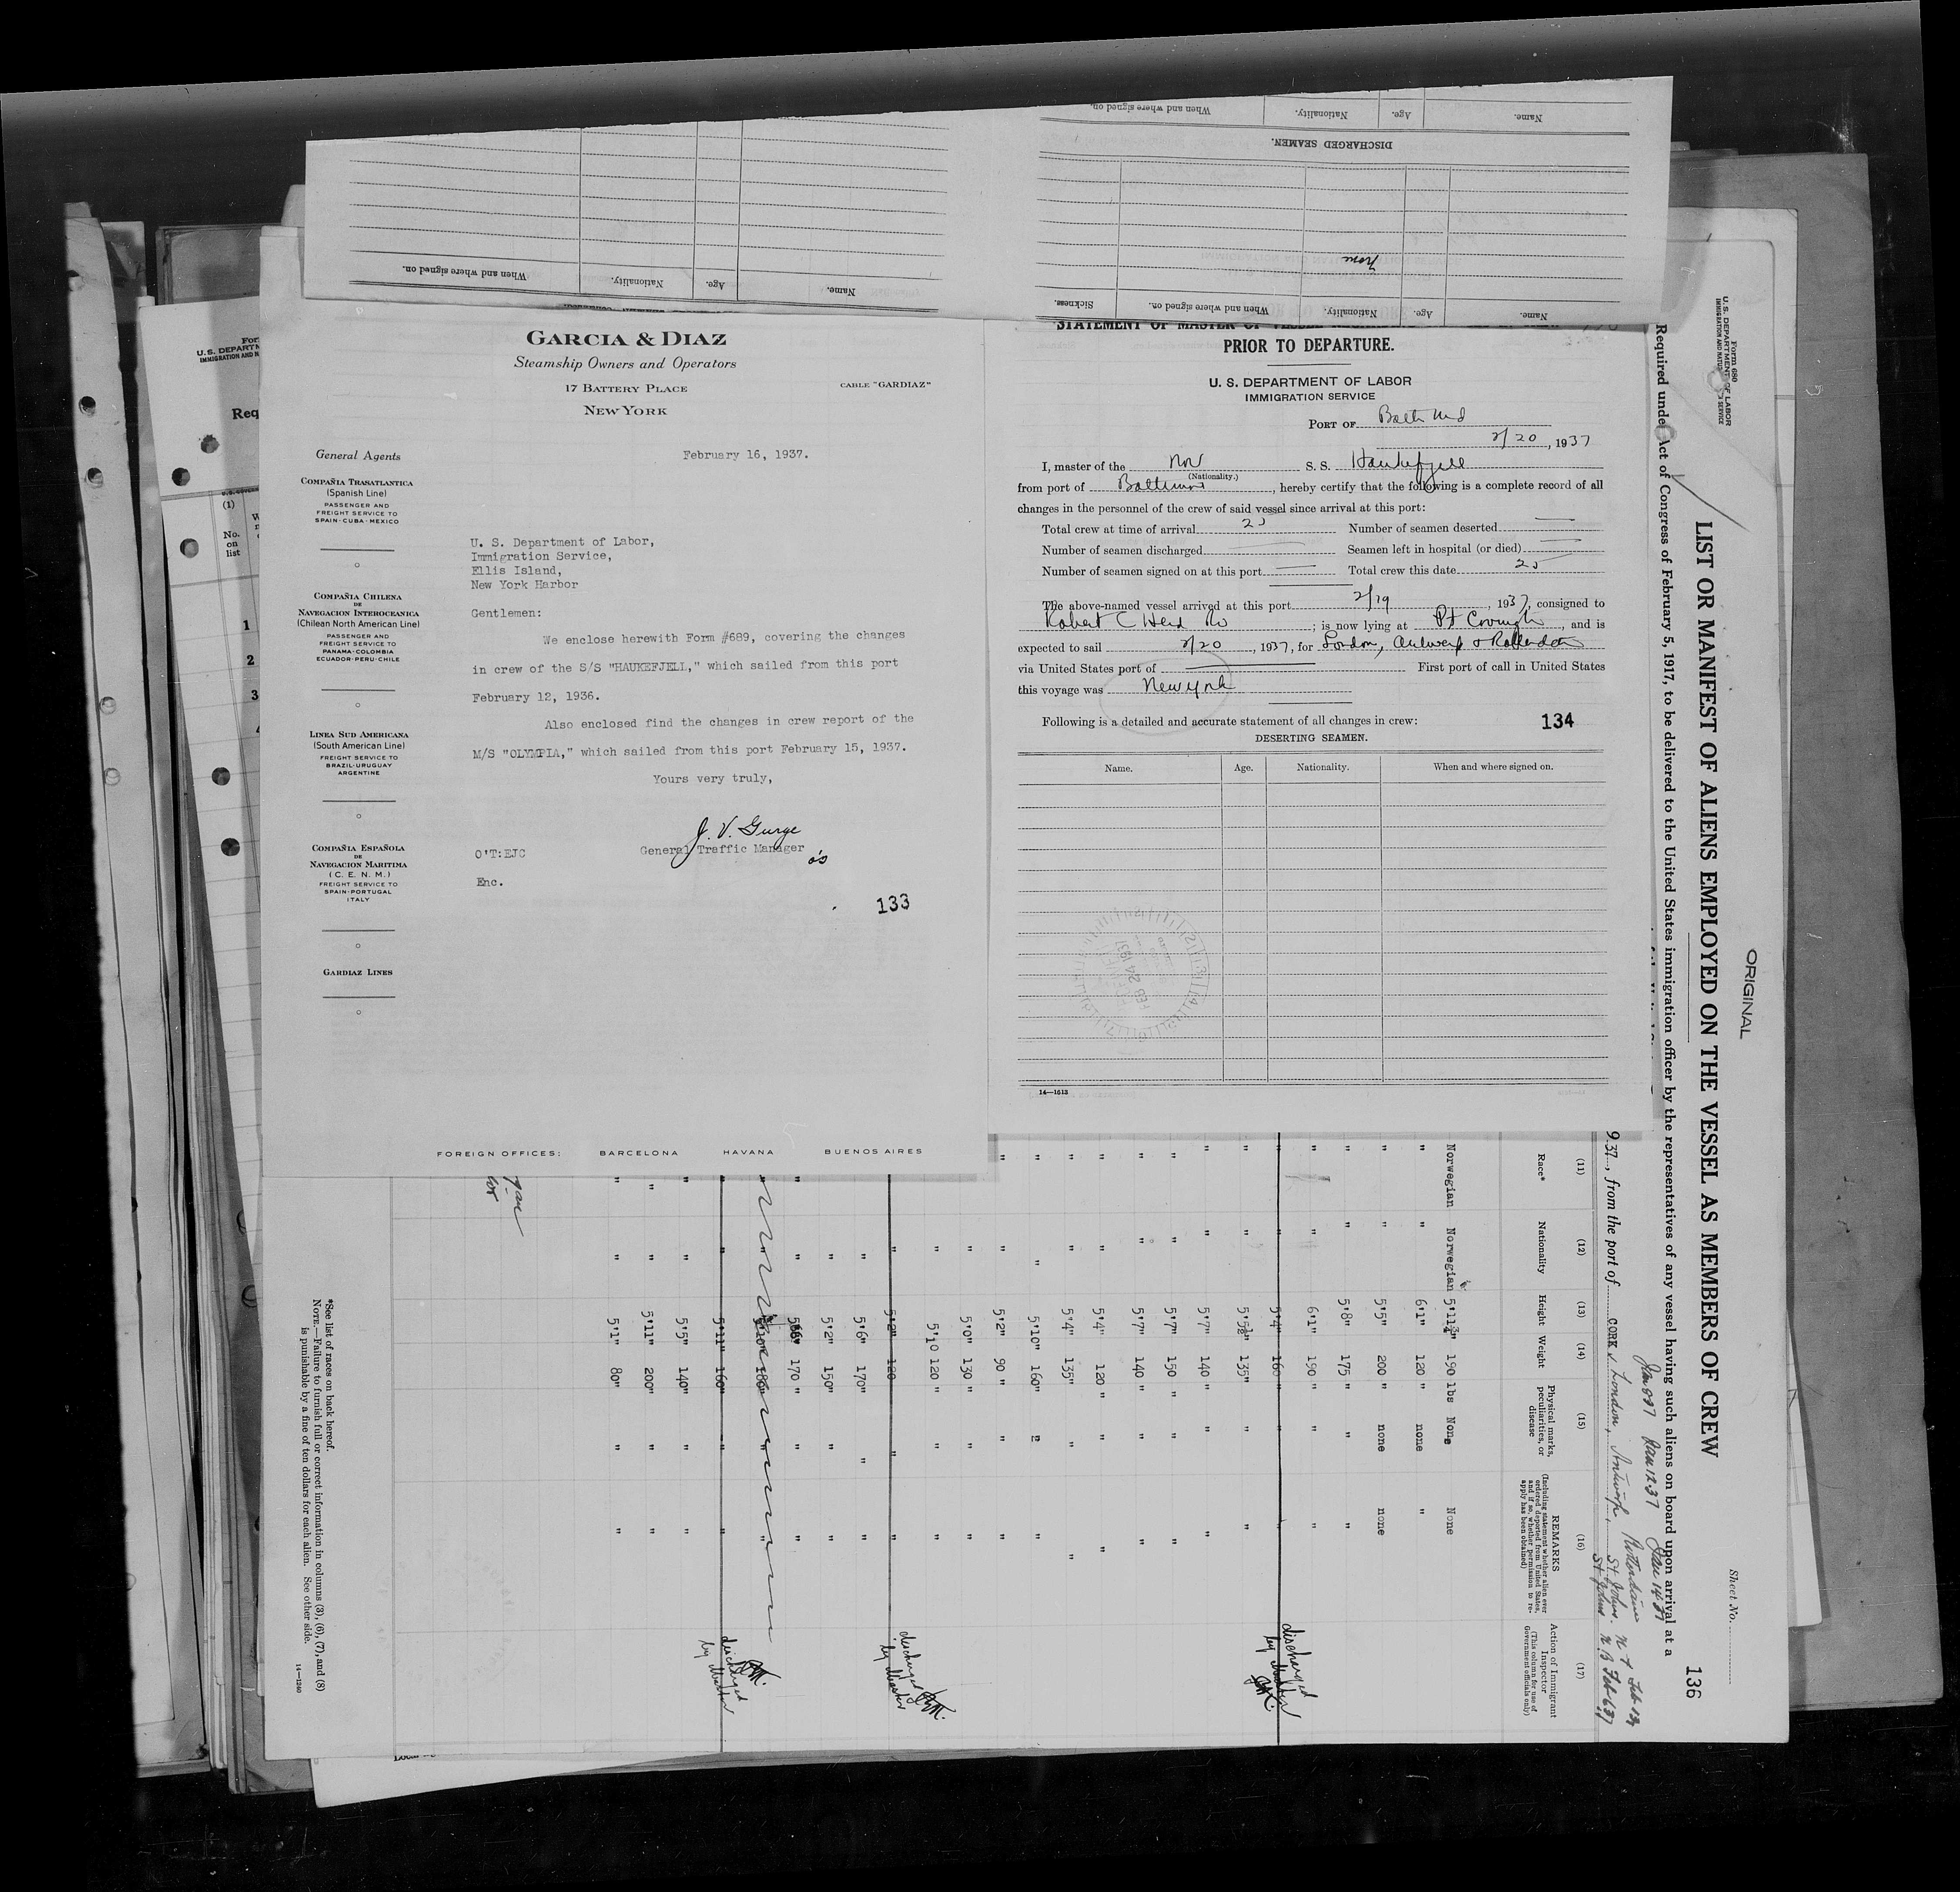 When and where signed on.
Nationality.
Age.
Name.
When and where signed on.
Nationality.
Age.
Name.
DISCHARGED SEAMEN.
none
Sickness.
When and where signed on.
Nationality.
Age.
Name.
GARCIA & DIAZ
Steamship Owners and Operators
17 BATTERY PLACE
CABLE "GARDIAZ"
NEW YORK
General Agents
February 16, 1937.
COMPAÑIA TRASATLANTICA
(Spanish Line)
PASSENGER AND
FREIGHT SERVICE TO
SPAIN-CUBA-MEXICO
U. S. Department of Labor,
Immigration Service,
Ellis Island,
New York Harbor
COMPAÑIA CHILENA
DE
NAVEGACION INTEROCEANICA
(Chilean North American Line)
PASSENGER AND
FREIGHT SERVICE TO
PANAMA-COLOMBIA
ECUADOR-PERU-CHILE
Gentlemen:
We enclose herewith Form #689, covering the changes
in crew of the S/S "HAUKEFJELL," which sailed from this port
February 12, 1936.
Also enclosed find the changes in crew report of the
M/S "OLYMPIA," which sailed from this port February 15, 1937.
Yours very truly,
LINEA SUD AMERICANA
(South American Line)
FREIGHT SERVICE TO
BRAZIL-URUGUAY
ARGENTINE
General Traffic Manager
O'T:EJC
Enc.
COMPAÑIA ESPAÑOLA
DE
NAVEGACION MARITIMA
(C. E. N. M.)
FREIGHT SERVICE TO
SPAIN-PORTUGAL
ITALY
133
GARDIAZ LINES
FOREIGN OFFICES: BARCELONA HAVANA BUENOS AIRES
STATEMENT OF MASTER OF VESSEL
PRIOR TO DEPARTURE.
U. S. DEPARTMENT OF LABOR
IMMIGRATION SERVICE
PORT OF Balto Md
2/20, 1937
I, master of the Nor S. S. Haukefjell
(Nationality.)
from port of Baltimore, hereby certify that the following is a complete record of all
changes in the personnel of the crew of said vessel since arrival at this port:
Total crew at time of arrival 25 Number of seamen deserted
Number of seamen discharged Seamen left in hospital (or died)
Number of seamen signed on at this port Total crew this date 25
The above-named vessel arrived at this port 2/19, 1937, consigned to
Robert C Herd ; is now lying at Pt Covington, and is
expected to sail 2/20, 1937, for London, Antwerp & Rotterdam
via United States port of First port of call in United States
this voyage was New York
Following is a detailed and accurate statement of all changes in crew:
134
DESERTING SEAMEN.
Name. Age. Nationality. When and where signed on.
FEB 24 1937
14—1613
ORIGINAL
Sheet No.
136
Form 680
U. S. DEPARTMENT OF LABOR
LIST OR MANIFEST OF ALIENS EMPLOYED ON THE VESSEL AS MEMBERS OF CREW
Required under Act of Congress of February 5, 1917, to be delivered to the United States immigration officer by the representatives of any vessel having such aliens on board upon arrival at a
Jan 12 37 Jan 14 37
from the port of CORK, London, Antwerp, Rotterdam
St. Johns N.B Feb 6 37
(11) (12) (13) (14) (15) (16) (17)
Race* Nationality Height Weight Physical marks, peculiarities, or disease
REMARKS
(Including statement whether alien ever ordered deported from United States, and if so, whether permission to re-apply has been obtained)
Action of Immigrant Inspector
(This column for use of Government officials only)
Norwegian Norwegian 5'11¾" 190 lbs None None
" " 6'1" 120 " none "
" " 5'5" 200 " none none
" " 5'8" 175 " " "
" " 6'1" 190 " " "
" " 5'4" 160 " " " discharged by Master
" " 5'5½" 135" " "
" " 5'7" 140 " " "
" " 5'7" 150 " " "
" " 5'7" 140 " " "
" " 5'4" 120 " " "
" " 5'4" 135" " "
" " 5'10" 160" " "
" " 5'2" 90 " " "
" 5'0" 130 " " "
" 5'10 120 " " "
" 5'2" 120 " " discharged by Master
" 5'6" 170" " "
" 5'2" 150" " "
" " 170 " " "
" 5'10" 180" " "
" " 5'11" 160" " " discharged by Master
" " 5'5" 140" " "
" " 5'11" 200" " "
" " 5'1" 80" " "
*See list of races on back hereof.
NOTE.—Failure to furnish full or correct information in columns (3), (6), (7), and (8)
is punishable by a fine of ten dollars for each alien. See other side.
14—1240
For
U. S. DEPARTM
IMMIGRATION AND N
Req
(1)
No.
on
list
1
2
3